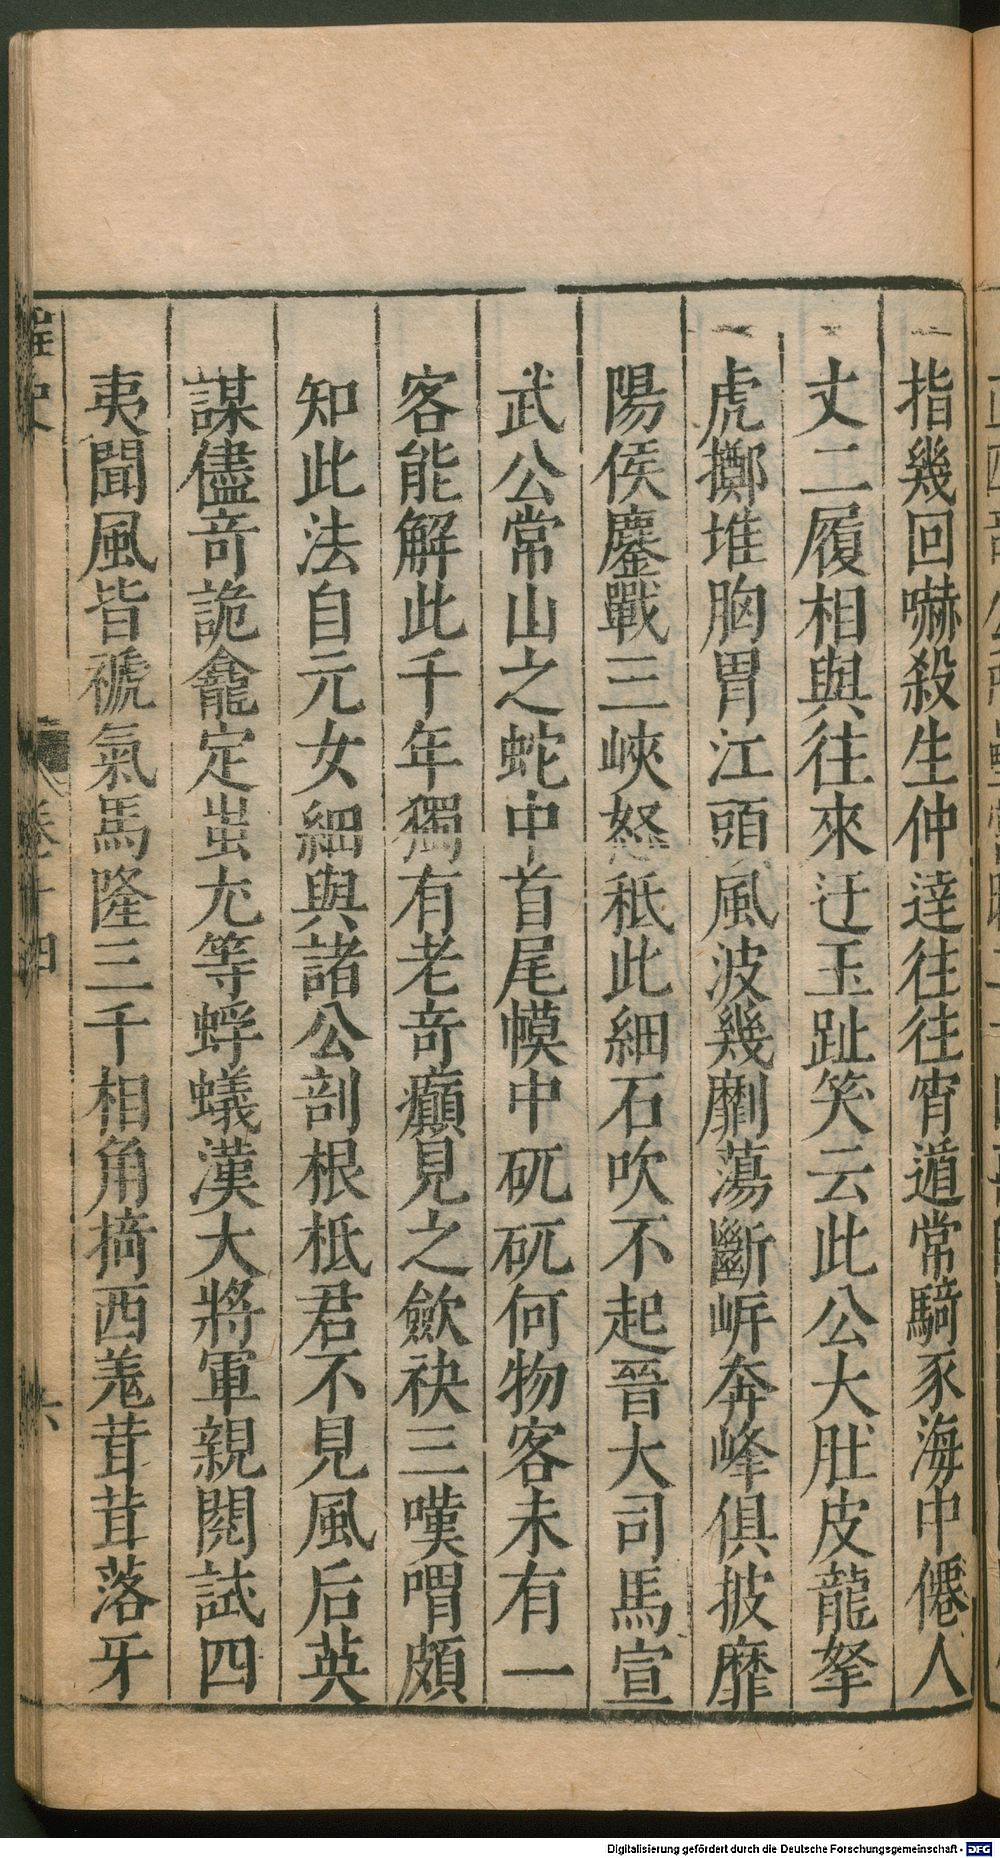 指幾回嚇殺生仲達往往宵遁常騎豕海中僊人
丈二履相與往來迂玉趾笑云此公大肚皮龍拏
虎擲堆胸胃江頭風波幾劘蕩斷岸奔峰俱披靡
陽侯鏖戰三峽怒秪此細石吹不起晉大司馬宣
武公常山之蛇中首尾幙中矹矹何物客未有一
客能解此千年獨有老竒癲見之歛袂三嘆喟頗
知此法自元女細與諸公剖根柢君不見風后英
謀儘竒詭龕定蚩尤等蜉蟻漢大將軍親閱試四
夷聞風皆褫氣馬隆三千相角掎西羗茸茸落牙
卷十四
六
Digitalisierung gefördert durch die Deutsche Forschungsgemeinschaft - DFG